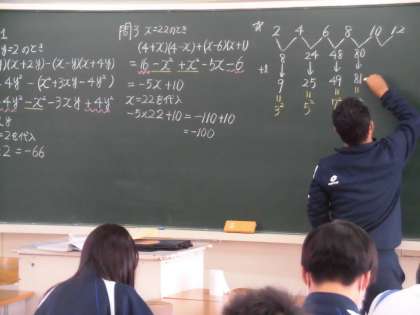 y=2のとき
)(x+2y)-(x-y)(x+4y)
-4y²-(x²+3xy-4y²)
-4y²-x²-3xy+4y²
xy
=2を代入
2=-66
問3 x=22のとき
(4+x)(4-x)+(x-6)(x+1)
=16-x²+x²-5x-6
=-5x+10
x=22を代入
-5x22+10=-110+10
=-100
2 4 6 8 10 12
8 24 48 80
+1
9 25 49 81
= = =
3² 5²